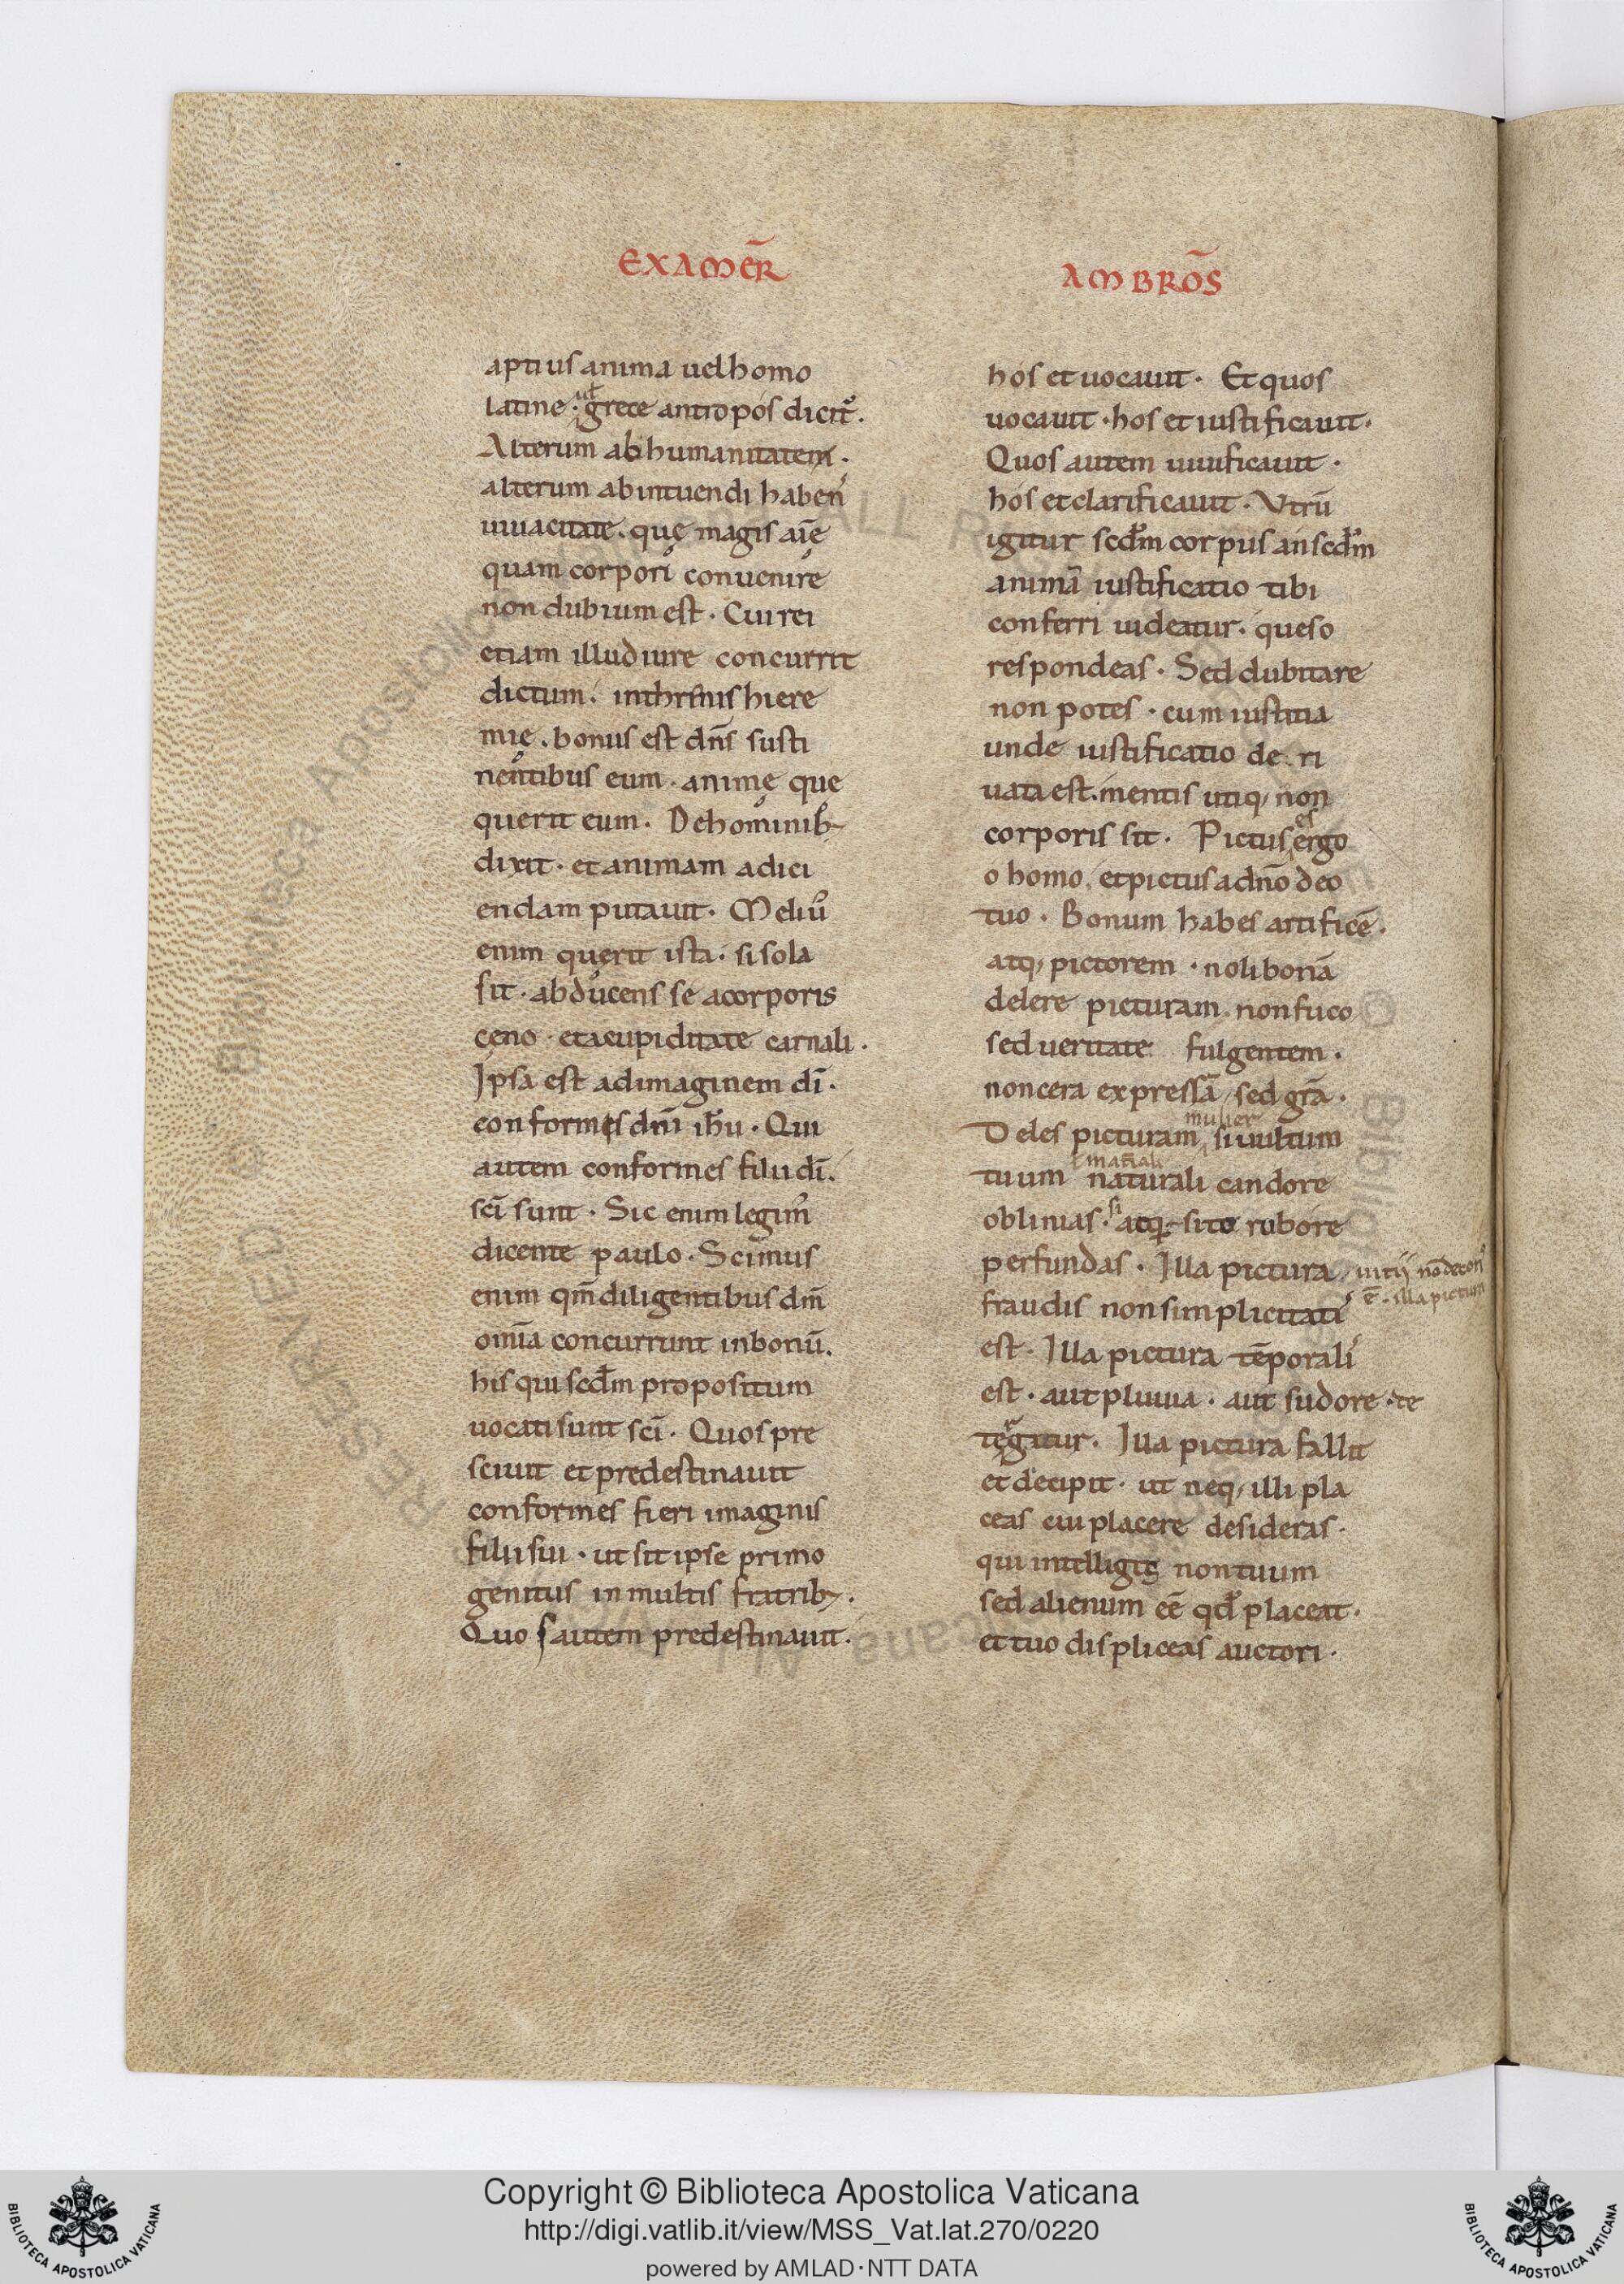 EXAMER̄
aptius anima uel homo
latine · uel grece antropos dicit᷒.
Alterum ab humanitatem ·
alterum ab intuendi haben
uiuacitate · quę magis aīe
quam corpori conuenire
non dubium est · Cui rei
etiam illud iure concurrit
dictum · inthrenis hiere
mię · bonus est dn̄s susti
nentibus eum · animę que
querit eum · De hominib;
dixit · et animam adici
endam putauit · Meliuˀ
enim querit ista · si sola
sit · abducens se acorporis
ceno · et acupiditate carnali ·
Ipsa est adimaginem dī ·
conformis dn̄i ih̄u · Qui
autem conformes filii dī.
scī sunt · Sic enim legimˀ
dicente paulo · Scimus
enim qm̄ diligentibus dm̄
omīa concurrunt in bonū.
his qui scd̄m propositum
uocati sunt scī · Quos pre
sciuit et predestinauit
conformes fieri imaginis
filii sui · ut sit ipse primo
genitus in multis fratrib; ·
Quos autem predestinauit ·
AMBRŌS
hos et uocauit · Et quos
uocauit · hos et iustificauit ·
Quos autem iustificauit ·
hos et clarificauit · Vtrū
igitur scd̄m corpus an scd̄m
animā iustificatio tibi
conferri uideatur · queso
respondeas · Sed dubitare
non potes · cum iustitia
unde iustificatio de ri
uata est · mentis utiq; non
corporis sit · Pictus es ergo
o homo, et pictus a dn̄o deo
tuo · Bonum habes artificē ·
atq; pictorem · noli bonā
delere picturam, non fuco
sed ueritate fulgentem ·
non cera expressā, sed gr̄a ·
Deles picturam mulier si uultum
tuum naturali candore
oblinias · si atq; sito rubore
perfundas · Illa pictura, uitij nō decoris
ē · illa pictura
fraudis non simplicitatis
est · Illa pictura tēporalis
est · aut pluuia · aut sudore · te
tegitur · Illa pictura fallit
et decipit · ut neq; illi pla
ceas cui placere desideras ·
qui intelligit non tuum
sed alienum eē qd̄ placeat ·
et tuo displiceas auctori ·
Copyright © Biblioteca Apostolica Vaticana
http://digi.vatlib.it/view/MSS_Vat.lat.270/0220
powered by AMLAD·NTT DATA
BIBLIOTECA APOSTOLICA VATICANA
BIBLIOTECA APOSTOLICA VATICANA